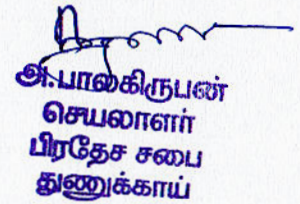 அ.பாலகிருபன்
செயலாளர்
பிரதேச சபை
துணுக்காய்